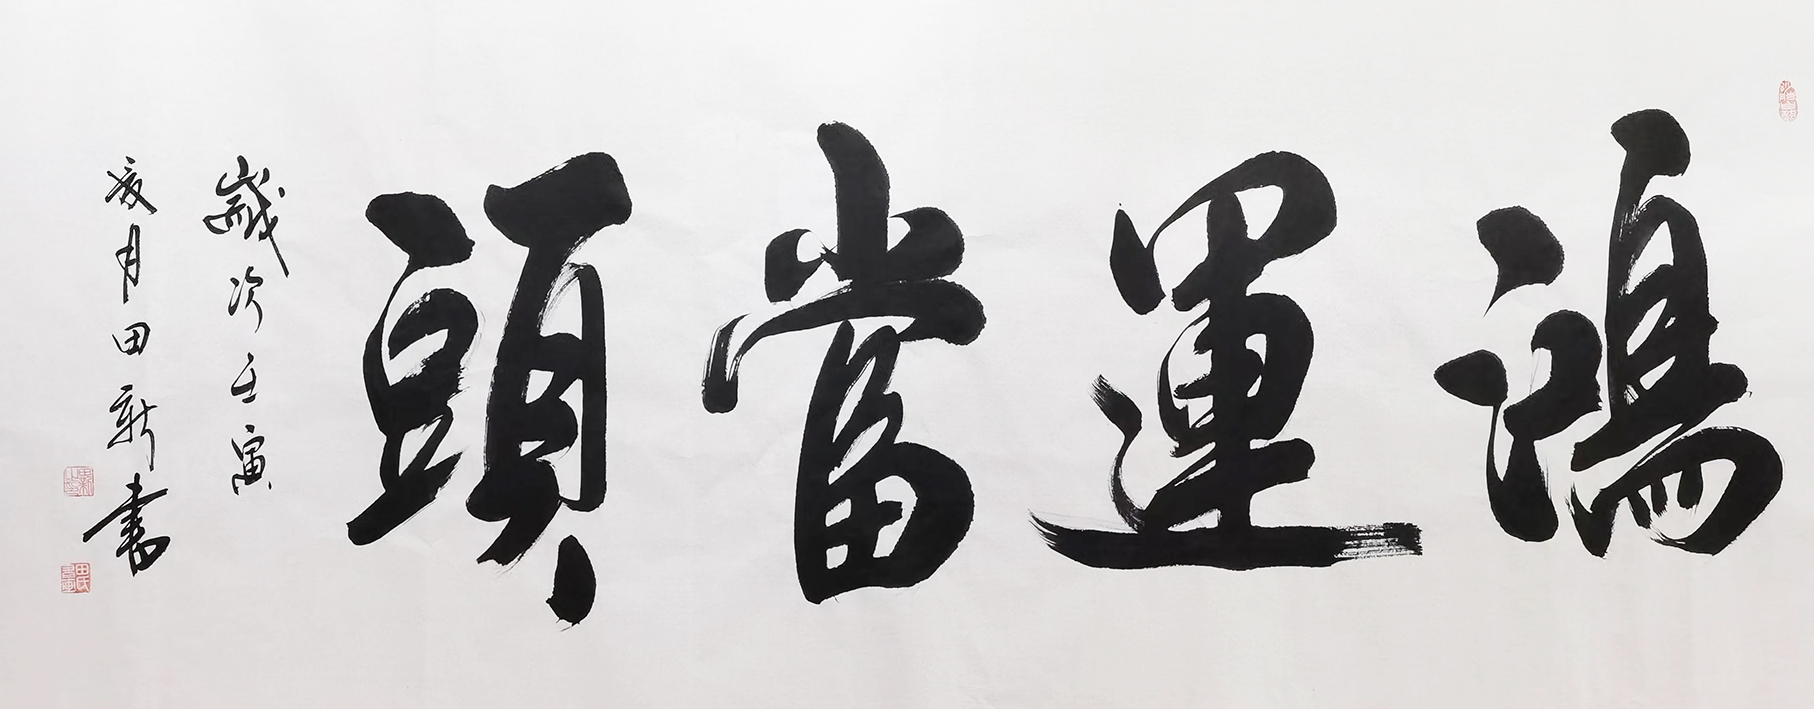 鴻運當頭
歲次壬寅
夏月田新書